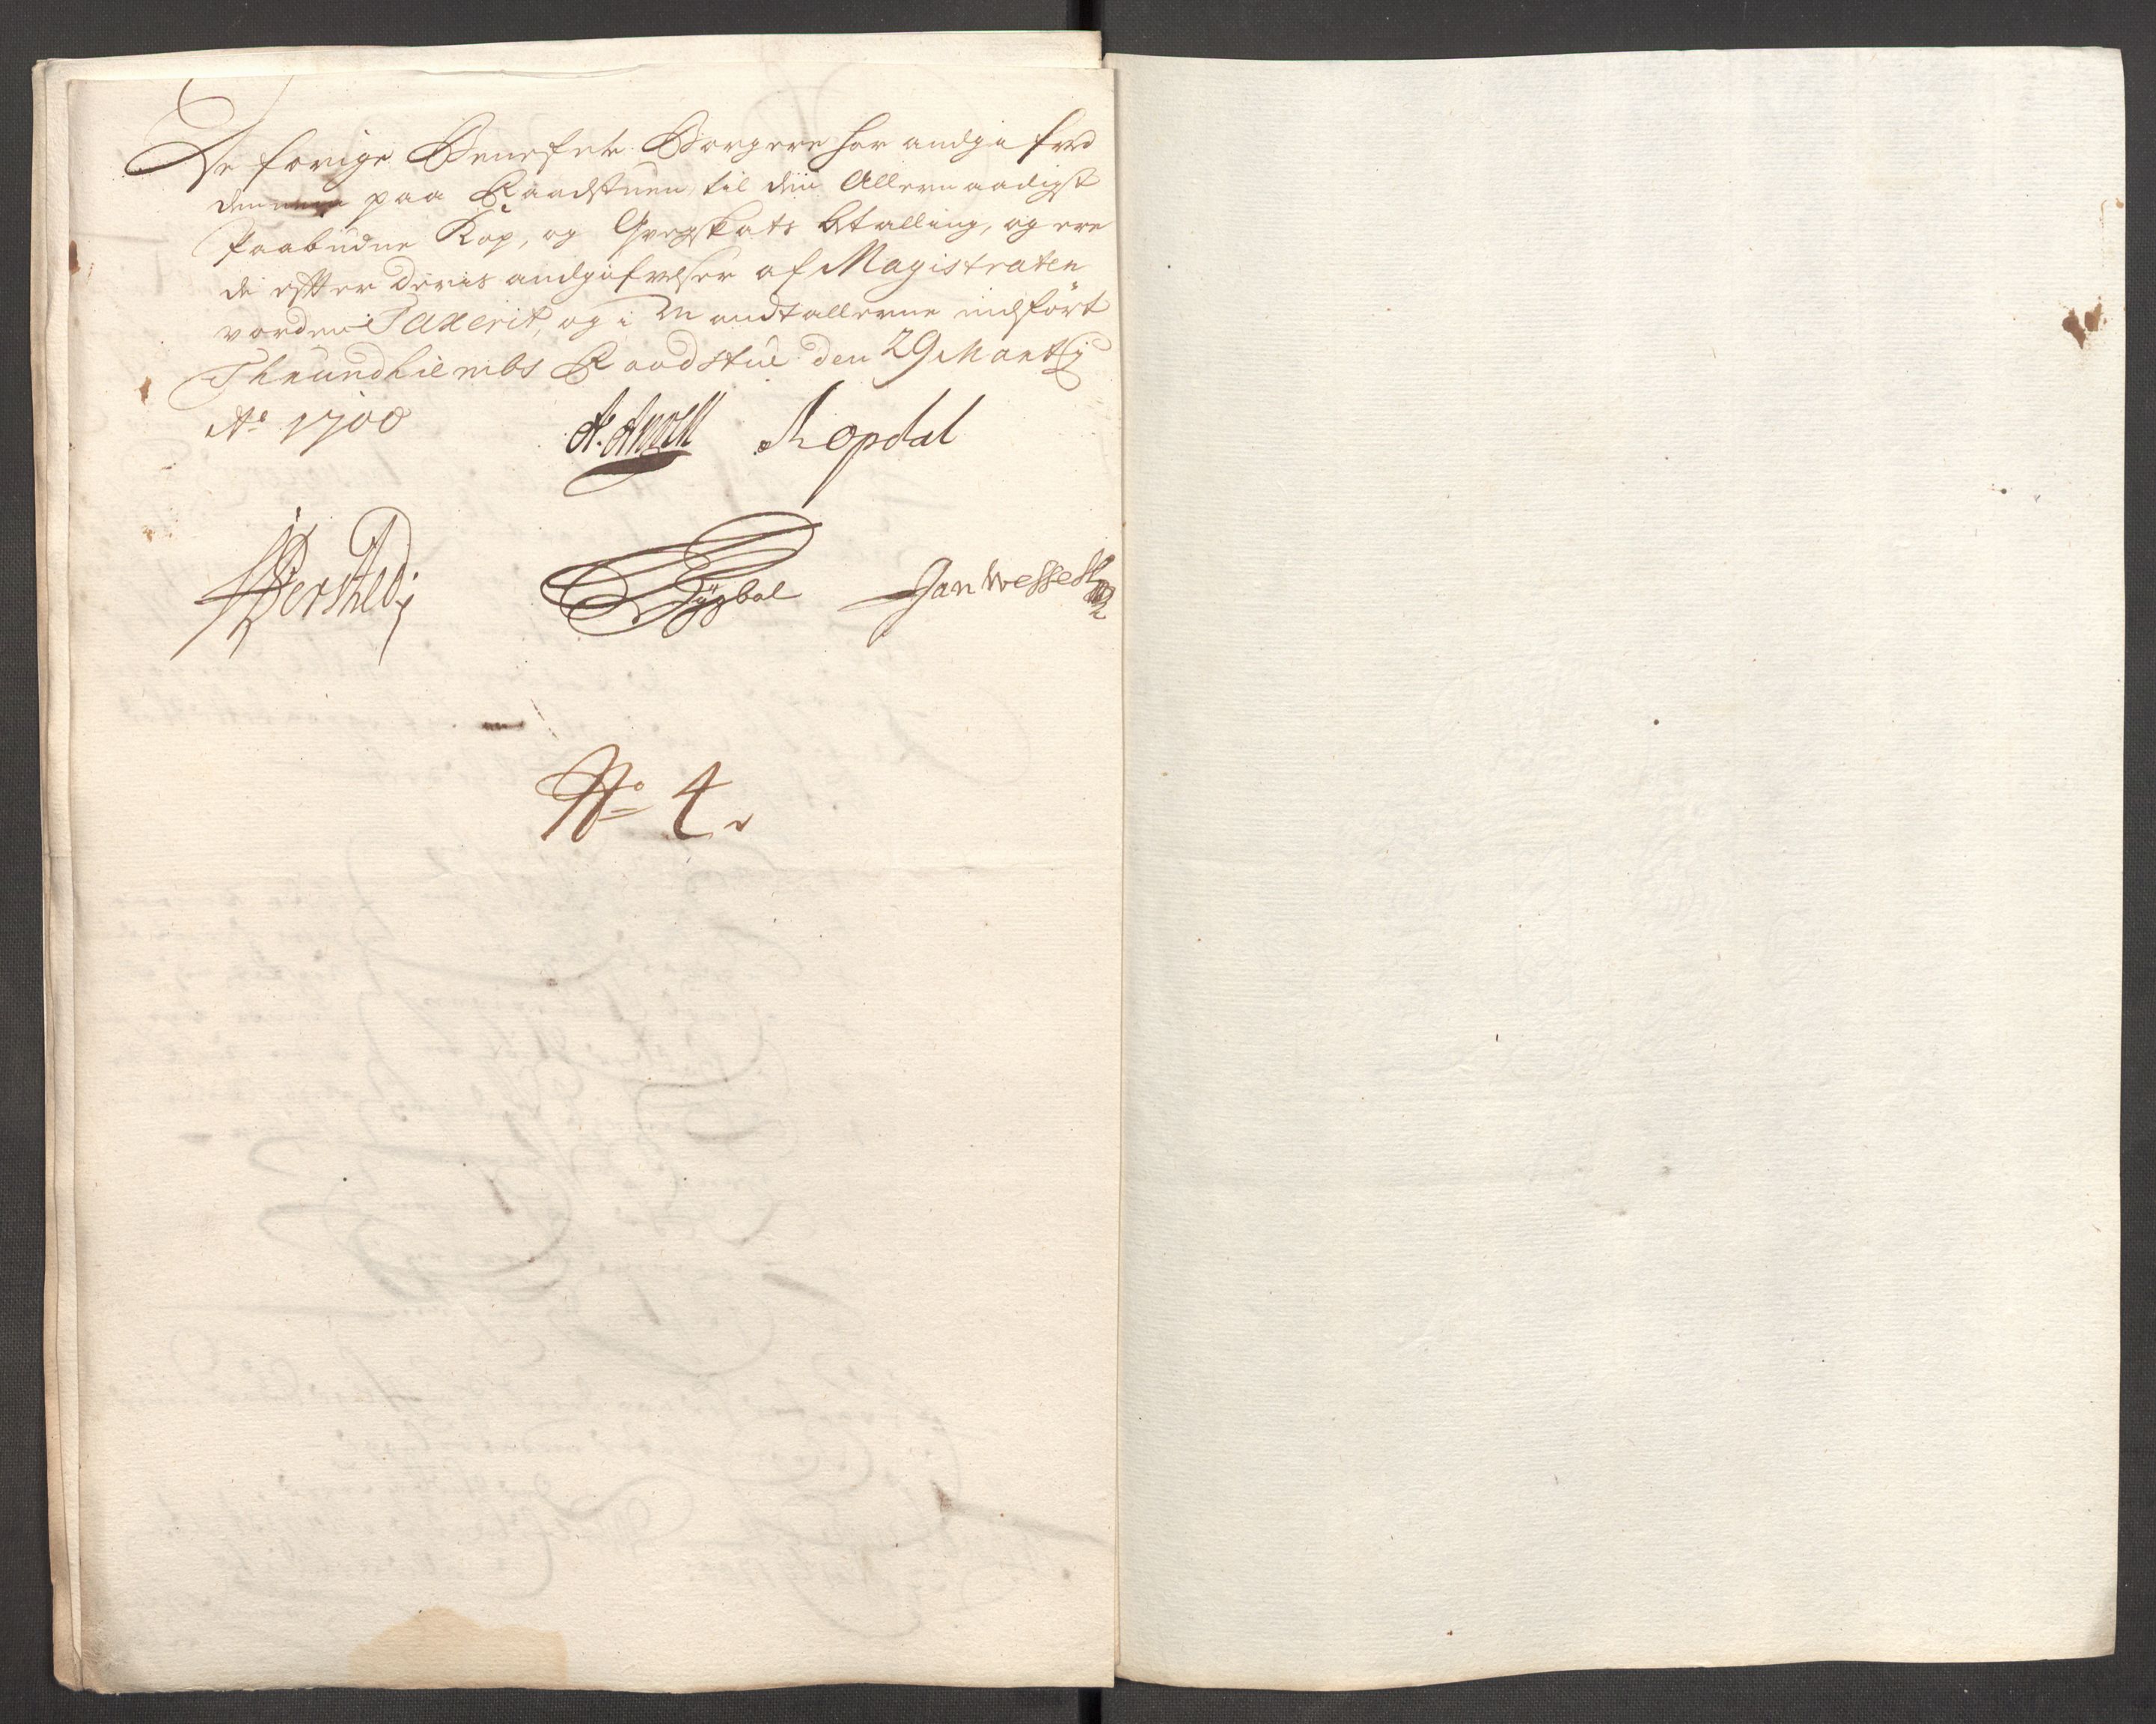 De forige Benefnte Borgere har andgifved
paa Raadstuen til din Allernaadigst
Paabudne Kop, og Qvegskats betalling, og ere
de effter deris andgifvelser af Magistraten
vorden Taxerit, og i Mandtallerne indført
Thrundhiembs Raadstue den 29 Martij
Ao 1700
Hopdal
Jan Wessell
No 4.